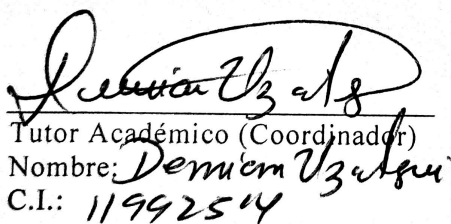 Tutor Académico (Coordinador)
Nombre: Demian Uzátegui
C.I.: 11992514